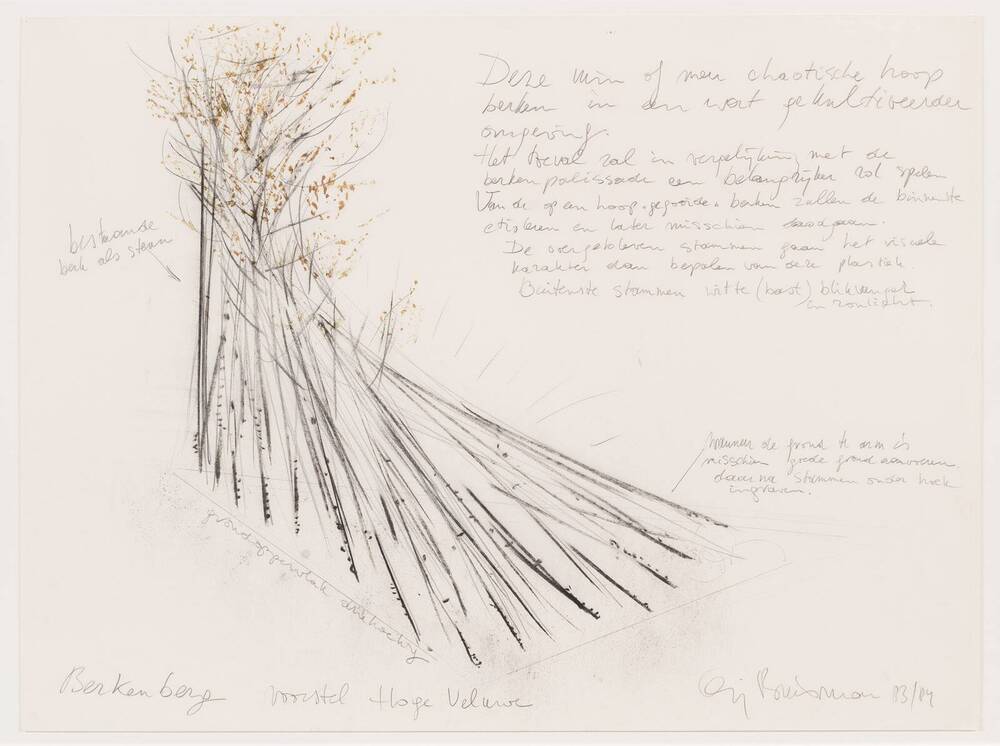 Deze vorm of meer chaotische hoop
berken in een wat gekultiveerder
omgeving.
Het toeval zal in vergelijking met de
berkenpalissade een belangrijker rol spelen
Van de op een hoop gegroeide berken zullen de binnenste
etioleren en later misschien doodgaan.
De overgebleven stammen gaan het visuele
karakter dan bepalen van deze plastiek.
Buitenste stammen witte (bast) blikvanger
in zonlicht.
bestaande
berk als steun
wanneer de grond te arm is
misschien goede grond aanvoeren
daarna stammen onder hoek
ingraven.
grondoppervlak driehoekig
Berkenberg voorstel Hoge Veluwe
83/84